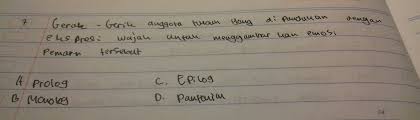 7 Gerak - Gerik anggota tubuh yang di padukan dengan
ekspresi wajah untuk menggambarkan emosi
pemain tersebut
A Prolog C. Epilog
B Monolog D. Pantomim